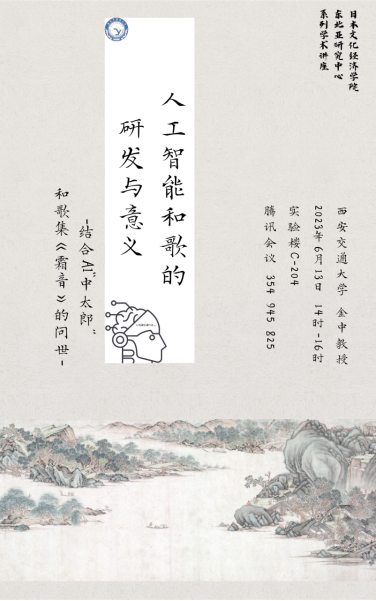 日本文化经济学院
东北亚研究中心
系列学术讲座
人工智能和歌的
研发与意义
-结合AI“中太郎”
和歌集《霜音》的问世-
西安交通大学 金中教授
2023年6月13日 14时-16时
实验楼C-204
腾讯会议 354 945 825